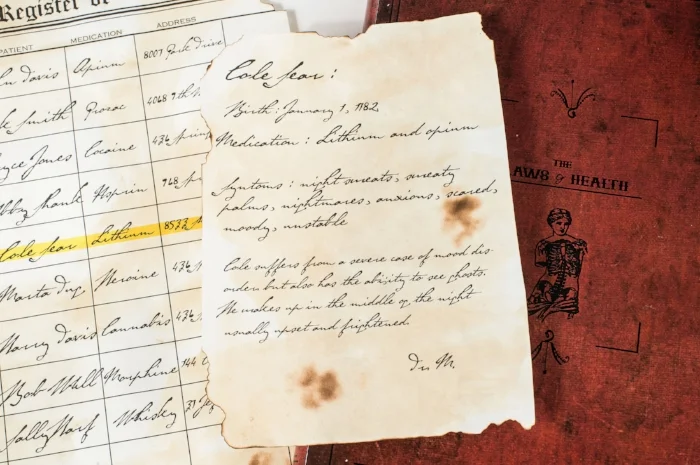 Register of
PATIENT MEDICATION ADDRESS
Davis Opium 8007 Park Drive
Smith Prozac 4048 9th
Jones Cocaine 434
Shank Aspirin 948
Cole Sear Lithium 8533
Marta Heroine 434
Harry Davis Cannabis 434
Bob Will Morphine 144
Sally Whiskey 27
Cole Sear :
Birth : January 1, 1182
Medication : Lithium and opium
Symtoms : night sweats, sweaty
palms, nightmares, anxious, scared,
moody, unstable
Cole suffers from a severe case of mood dis
order but also has the ability to see ghosts.
He wakes up in the middle of the night
usually upset and frightened.
Dr M.
THE
LAWS of HEALTH